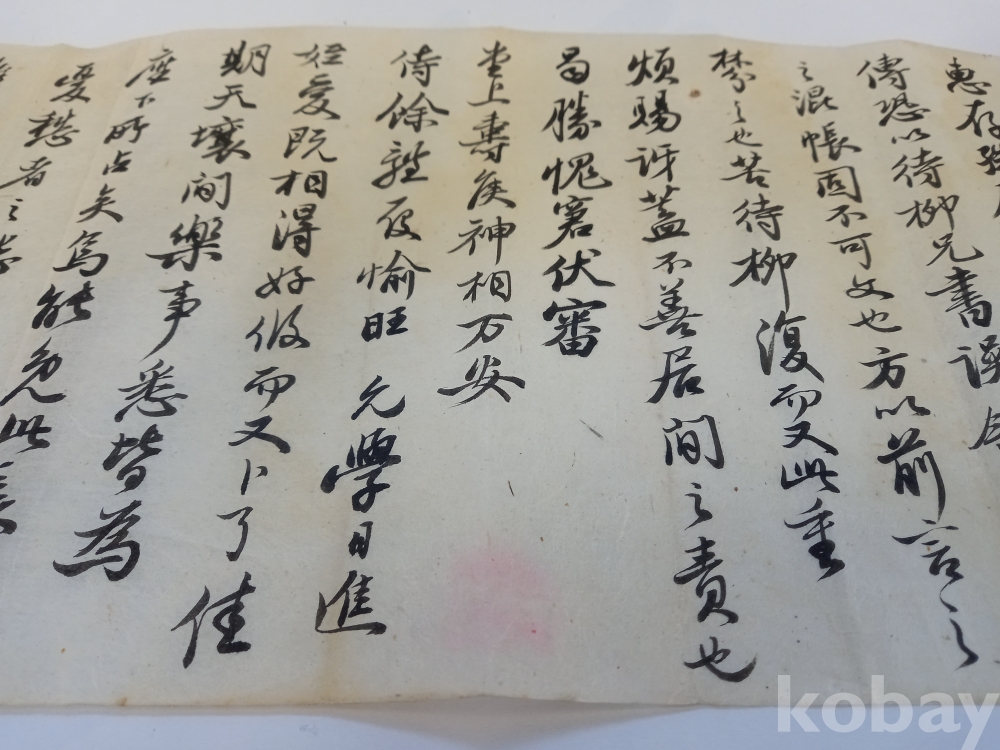 惠存
傳恐以待柳兄書誤
之混帳固不可文也方以前言之
禁之也苦待柳 復而又此重
煩賜訝蓋不善居間之責也
曷勝愧窘伏審
堂上壽候神相万安
侍餘 履愉旺 允學日進
旣相得好 而又卜了佳
期天壤間樂事悉皆爲
座下所占矣烏能免此
愛 者之
kobay